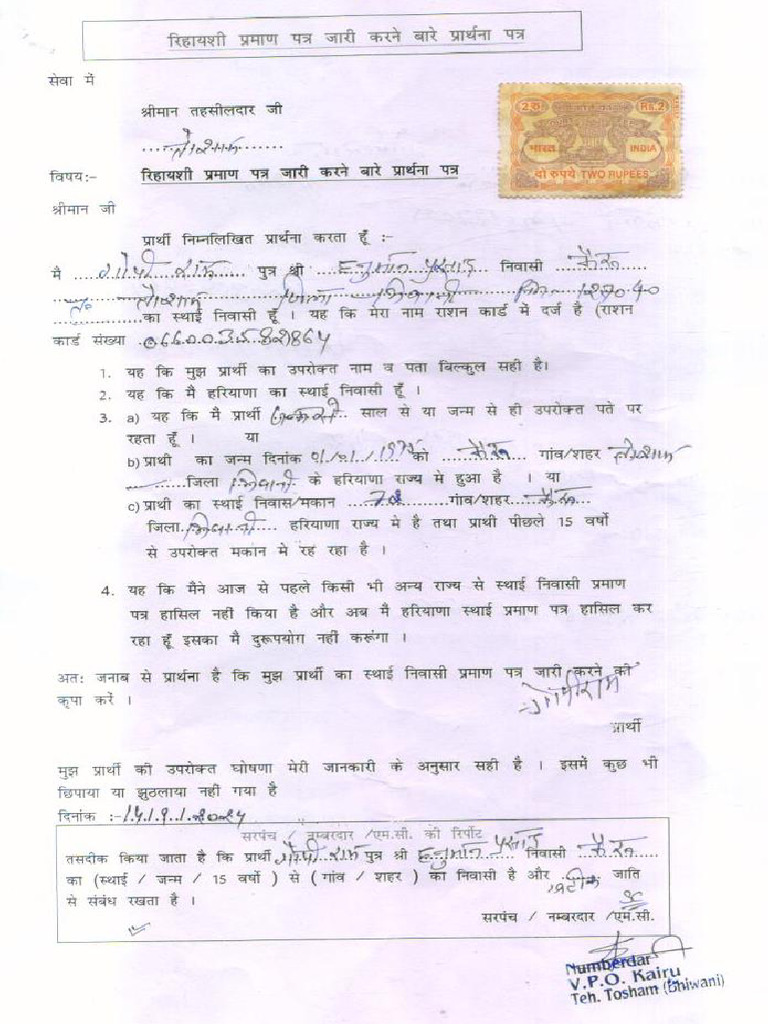 रिहायशी प्रमाण पत्र जारी करने बारे प्रार्थना पत्र
सेवा में
श्रीमान तहसीलदार जी
तोशाम
2 रु Rs. 2
भारत INDIA
दो रुपये TWO RUPEES
विषय:- रिहायशी प्रमाण पत्र जारी करने बारे प्रार्थना पत्र
श्रीमान जी
प्रार्थी निम्नलिखित प्रार्थना करता हूँ :-
मै गोपी राम पुत्र श्री हनुमान प्रसाद निवासी कैरू
त० तोशाम जिला भिवानी पिन- 127040
का स्थाई निवासी हूँ । यह कि मेरा नाम राशन कार्ड में दर्ज है (राशन
कार्ड संख्या 066003582864
1. यह कि मुझ प्रार्थी का उपरोक्त नाम व पता बिल्कुल सही है।
2. यह कि मै हरियाणा का स्थाई निवासी हूँ ।
3. a) यह कि मै प्रार्थी साल से या जन्म से ही उपरोक्त पते पर
रहता हूँ । या
b) प्रार्थी का जन्म दिनांक 01/01/1975 को कैरू गांव/शहर तोशाम
जिला भिवानी के हरियाणा राज्य मे हुआ है । या
c) प्रार्थी का स्थाई निवास/मकान गांव/शहर कैरू
जिला भिवानी हरियाणा राज्य मे है तथा प्रार्थी पीछले 15 वर्षो
से उपरोक्त मकान में रह रहा है ।
4. यह कि मैने आज से पहले किसी भी अन्य राज्य से स्थाई निवासी प्रमाण
पत्र हासिल नहीं किया है और अब मै हरियाणा स्थाई प्रमाण पत्र हासिल कर
रहा हूँ इसका मै दुरूपयोग नहीं करूंगा ।
अतः जनाब से प्रार्थना है कि मुझ प्रार्थी का स्थाई निवासी प्रमाण पत्र जारी करने की
कृपा करें ।
गोपीराम
प्रार्थी
मुझ प्रार्थी की उपरोक्त घोषणा मेरी जानकारी के अनुसार सही है । इसमें कुछ भी
छिपाया या झुठलाया नही गया है
दिनांक :-
सरपंच / नम्बरदार /एम.सी. की रिर्पोट
तसदीक किया जाता है कि प्रार्थी गोपी राम पुत्र श्री हनुमान प्रसाद निवासी कैरू
का (स्थाई / जन्म / 15 वर्षो ) से ( गांव / शहर ) का निवासी है और जाति
से संबंध रखता है ।
SC
सरपंच / नम्बरदार /एम.सी.
Numberdar
V.P.O. Kairu
Teh. Tosham (Bhiwani)